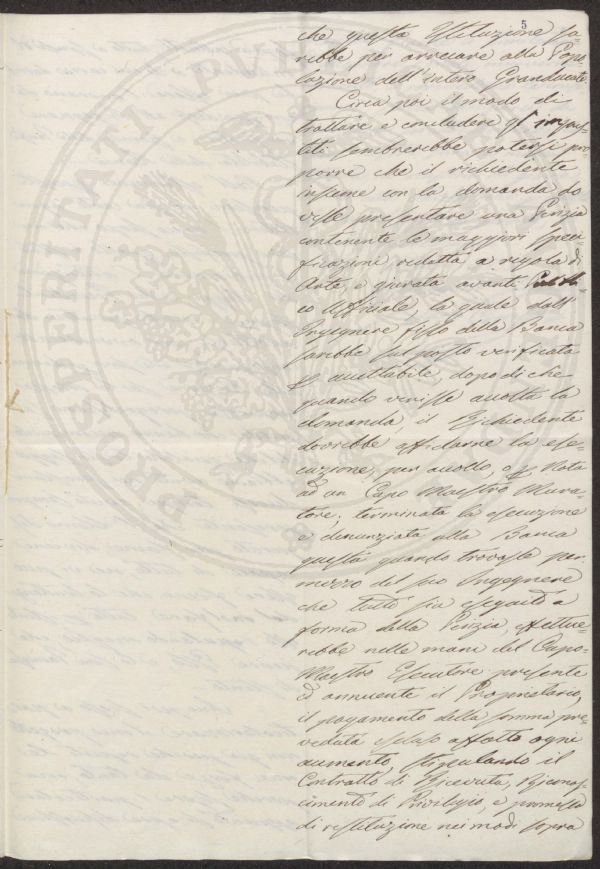 5
che questa Istituzione sa-
rebbe per arrecare alla Popo-
lazione dell'intero Granducato.
Circa poi il modo di
trattare e concludere gl'impres-
titi sembrerebbe potersi pro-
porre che il richiedente
insieme con la domanda do-
vesse presentare una Perizia
contenente le maggiori speci-
ficazioni redatta a regola di
Arte, e giurata avanti Pubbli-
co Uffiziale, la quale dall'
Ingegnere fisso della Banca
sarebbe sul posto verificata
se accettabile, dopo di che
quando venisse accolta la
domanda, il Richiedente
dovrebbe affidarne la ese-
cuzione, per accollo, o p. Nota
ad un Capo Maestro Mura-
tore; terminata la esecuzione
e denunziata alla Banca
questa quando trovasse per
mezzo del suo Ingegnere
che tutto sia eseguito a
forma della Perizia effettue-
rebbe nelle mani del Capo-
Maestro Esecutore presente
ed annuente il Proprietario,
il pagamento della somma pre-
veduta escluso affatto ogni
aumento, stipulando il
Contratto di Ricevuta, Ricono-
scimento di Privilegio, e promessa
di restituzione nei modi sopra
PROSPERITATI PVB